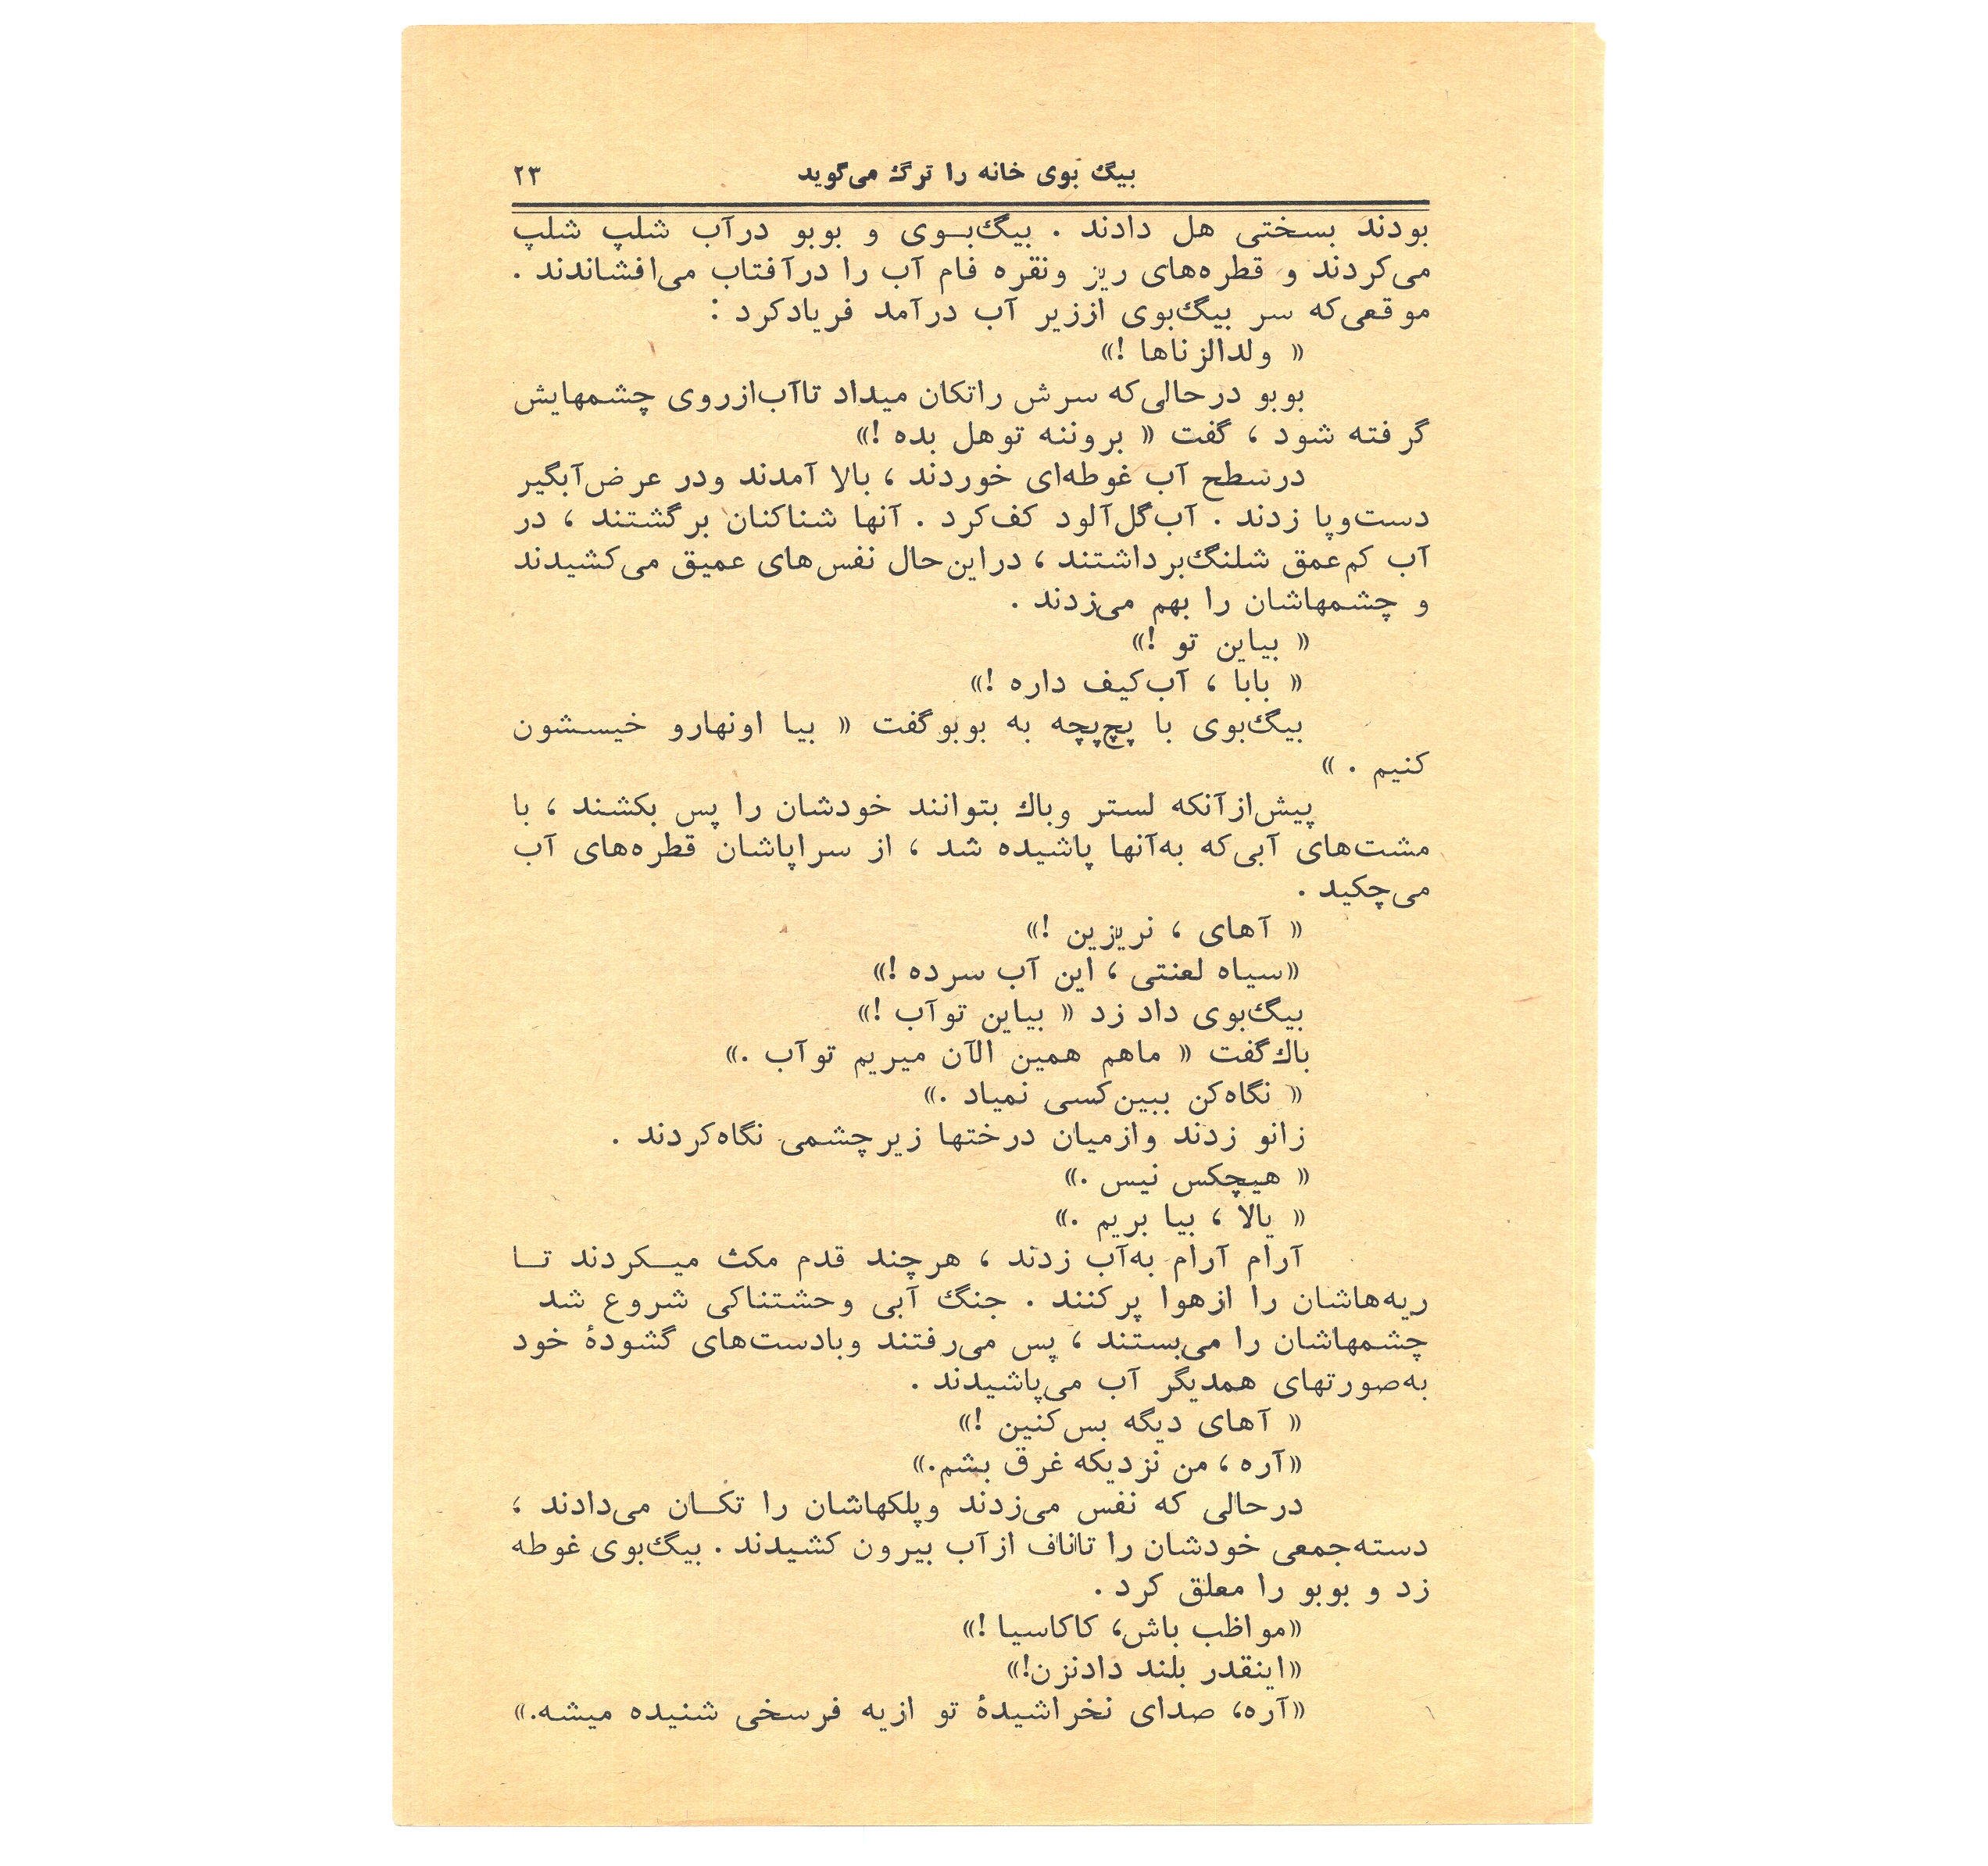 بیگ بوی خانه را ترک می‌گوید ۲۳
بودند بسختی هل دادند . بیگ‌بـوی و بوبو درآب شلپ شلپ
می‌کردند و قطره‌های ریز ونقره فام آب را درآفتاب می‌افشاندند .
موقعی‌که سر بیگ‌بوی اززیر آب درآمد فریادکرد :
« ولدالزناها !»
بوبو درحالی‌که سرش راتکان میداد تاآب‌ازروی چشمهایش
گرفته شود ، گفت « بروننه توهل بده !»
درسطح آب غوطه‌ای خوردند ، بالا آمدند ودر عرض‌آبگیر
دست‌وپا زدند . آب‌گل‌آلود کف‌کرد . آنها شناکنان برگشتند ، در
آب کم‌عمق شلنگ‌برداشتند ، دراین‌حال نفس‌های عمیق می‌کشیدند
و چشمهاشان را بهم می‌زدند .
« بیاین تو !»
« بابا ، آب‌کیف داره !»
بیگ‌بوی با پچ‌پچه به بوبوگفت « بیا اونهارو خیسشون
کنیم . »
پیش‌ازآنکه لستر وباك بتوانند خودشان را پس بکشند ، با
مشت‌های آبی‌که به‌آنها پاشیده شد ، از سراپاشان قطره‌های آب
می‌چکید .
« آهای ، نریزین !»
«سیاه لعنتی ، این آب سرده !»
بیگ‌بوی داد زد « بیاین توآب !»
باك‌گفت « ماهم همین الآن میریم توآب .»
« نگاه‌کن ببین‌کسی نمیاد .»
زانو زدند وازمیان درختها زیرچشمی نگاه‌کردند .
« هیچکس نیس .»
« یالا ، بیا بریم .»
آرام آرام به‌آب زدند ، هرچند قدم مکث میـکردند تـا
ریه‌هاشان را ازهوا پرکنند . جنگ آبی وحشتناکی شروع شد
چشمهاشان را می‌بستند ، پس می‌رفتند وبادست‌های گشودهٔ خود
به‌صورتهای همدیگر آب می‌پاشیدند .
« آهای دیگه بس‌کنین !»
«آره ، من نزدیکه غرق بشم.»
درحالی که نفس می‌زدند وپلکهاشان را تکـان می‌دادند ،
دسته‌جمعی خودشان را تاناف ازآب بیرون کشیدند . بیگ‌بوی غوطه
زد و بوبو را معلق کرد .
«مواظب باش، کاکاسیا !»
«اینقدر بلند دادنزن!»
«آره، صدای نخراشیدهٔ تو ازیه فرسخی شنیده میشه.»